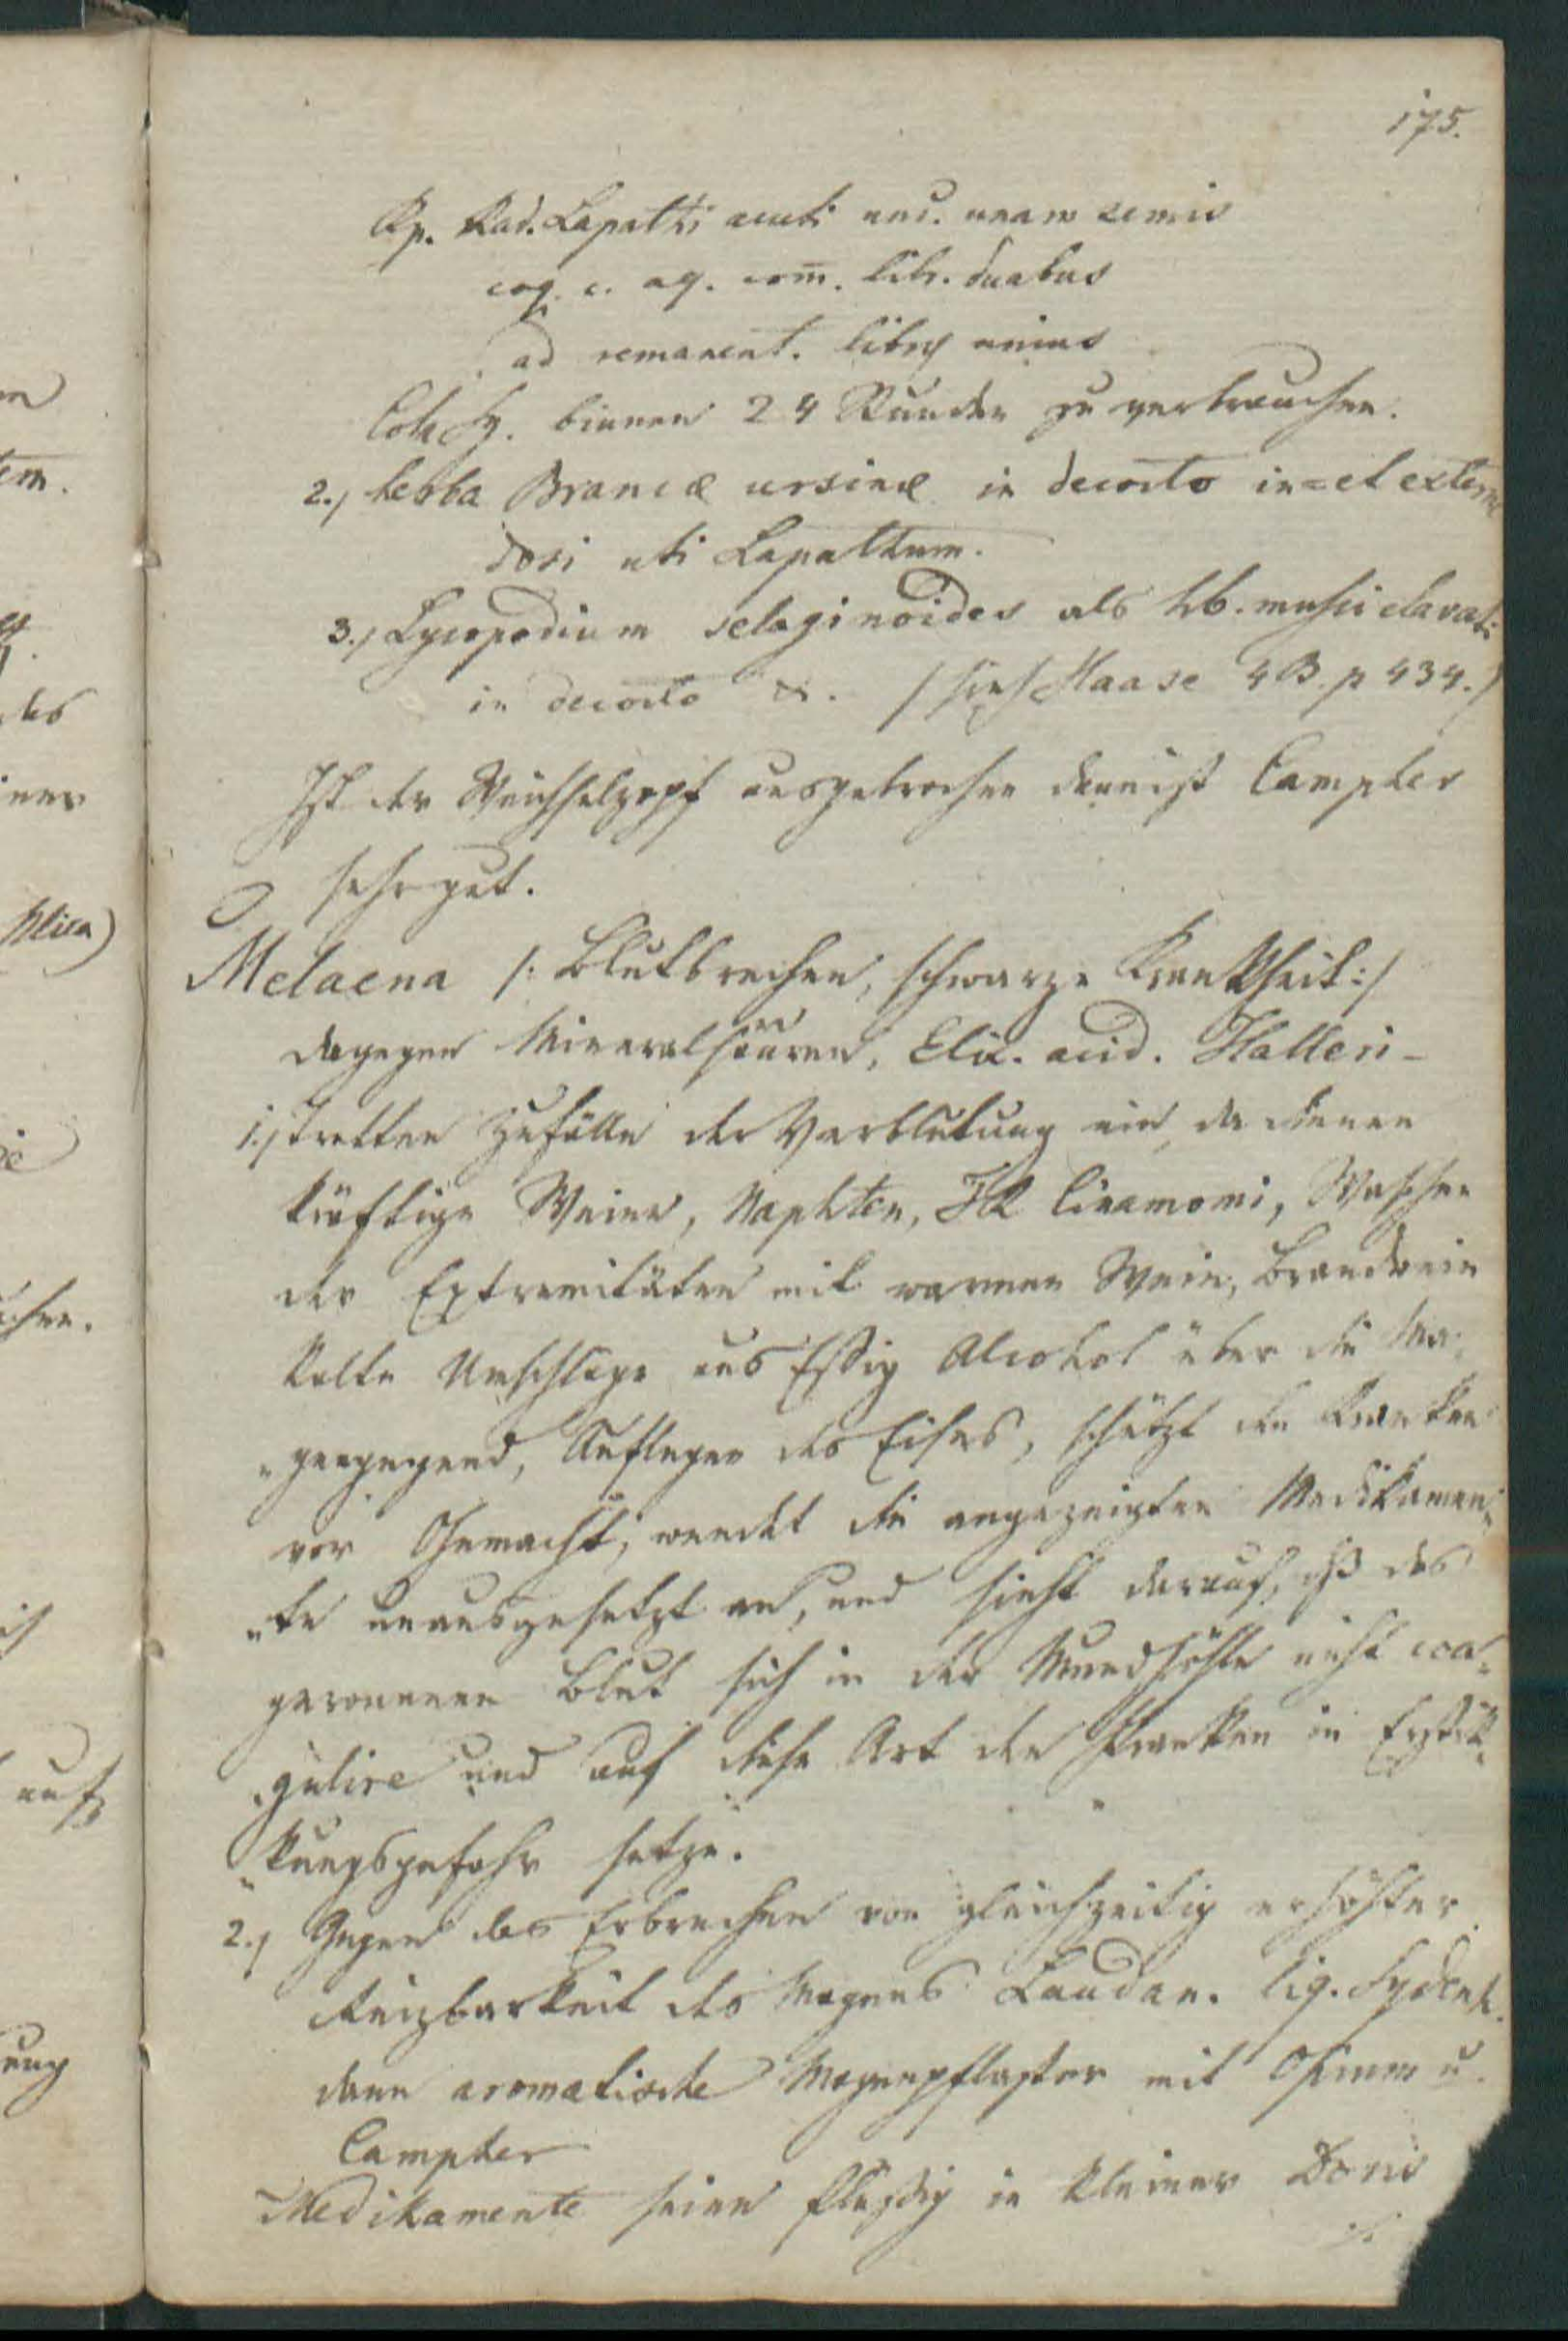 175.
Rp. Rad. Lapathi acuti unc. unam semis
coq. c. aq. com̅. libr. duabus
ad remanent. libræ unius
Col. Sy. binnen 24 Stunden zu verbrauchen.
2., herba Brancæ ursinæ in decocto in= et externe
dosi uti Lapathum.
3., Lycopodium selaginoides als hb. musci clavati
in decocto &. /sieh Haase 4 B. p 434./
Ist der Weichselzopf ausgebrochen dann ist Campher
sehr gut.
Melaena /: Blutbrechen, schwarze Krankheit :/
dagegen Mineralsäuren, Elix. acid. Halleri -
1., tretten Zufälle der Verblutung ein, da dienen
kräftige Weine, Naphten, Cinamomi, Waschen
der Extremitäten mit warmen Wein, Brandwein
kalte Umschläge aus Essig Alcohol über die Ma-
„gengegend, Auflegen des Eises, schützt den Kranken
vor Ohnmacht, wendet die angezeigten Medikamen„
„te unausgesetzt an, und sieht darauf, dß das
geronnene Blut sich in der Mundhöhle nicht coa„
„gulire und auf diese Art den Kranken in Erstik„
„kungsgefahr setze.
2., Gegen das Erbrechen von gleichzeitig erhöhter
Reizbarkeit des Magens Laudan. liq. Sydenh.
dann aromatische Magenpflaster mit Opium u.
Campher
Medikamente seien flüßig in kleiner Dosis
./.